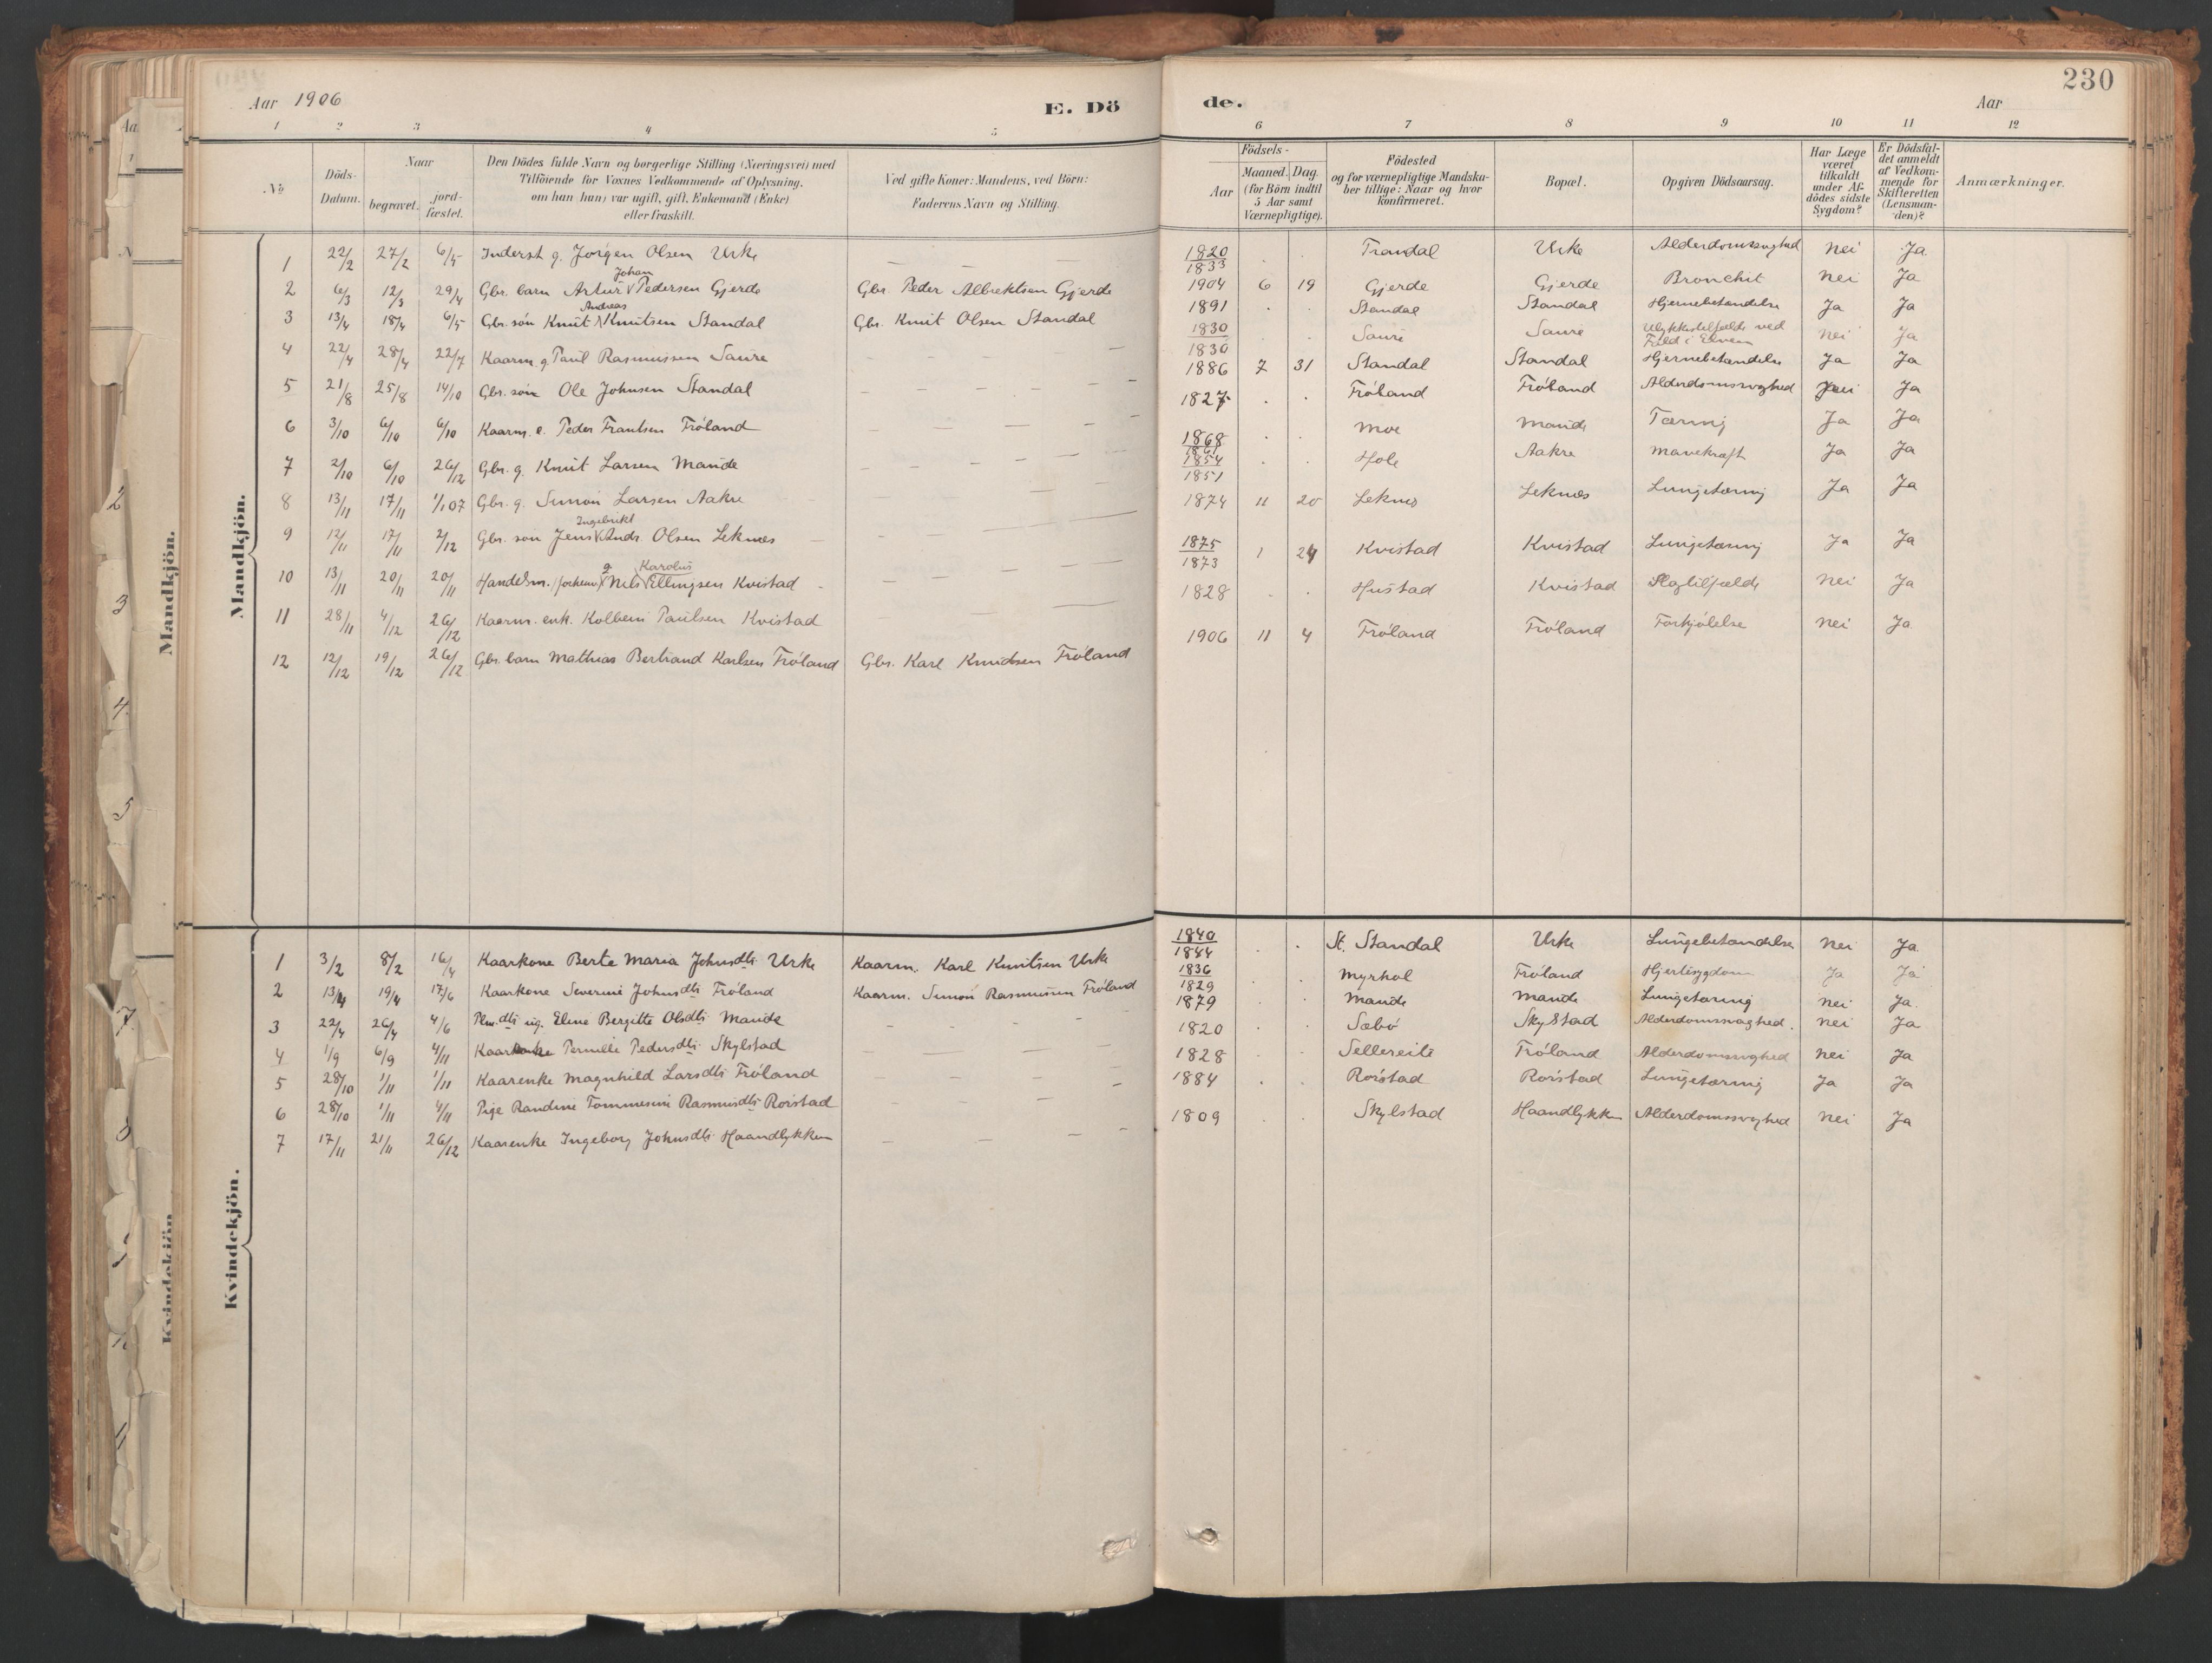 230
Aar 1906
E. Dö
de.
Aar
1 2 3 4 5 6 7 8 9 10 11 12
№
Döds-Datum.
Naar
begravet.
jord-fæstet.
Den Dödes fulde Navn og borgerlige Stilling (Næringsvei) med
Tilföiende for Voxnes Vedkommende af Oplysning,
om han (hun) var ugift, gift, Enkemand (Enke)
eller fraskilt.
Ved gifte Koner: Mandens, ved Börn:
Faderens Navn og Stilling.
Födsels-
Aar
Maaned. Dag.
(for Börn indtil
5 Aar samt
Værnepligtige).
Födested
og for værnepligtige Mandska-
ber tillige: Naar og hvor
konfirmeret.
Bopæl.
Opgiven Dödsaarsag.
Har Læge
været
tilkaldt
under Af-
dödes sidste
Sygdom?
Er Dödsfal-
det anmeldt
af Vedkom-
mende for
Skifteretten
(Lensman-
den)?
Anmærkninger.
Mandkjön.
1 22/2 27/2 6/5 Inderst g. Jörgen Olsen Urke — — — 1820/1833 . . Trandal Urke Alderdomssvaghed Nei Ja
2 6/3 12/3 29/4 Gbr. barn Artur Johan Pedersen Gjerde Gbr. Peder Albrektsen Gjerde 1904 6 19 Gjerde Gjerde Bronchit Nei Ja
3 13/4 18/4 6/5 Gbr. sön Knut Andreas Knutsen Standal Gbr. Knut Olsen Standal 1891 . . Standal Standal Hjernebetændelse Ja Ja
4 22/4 28/4 22/7 Kaarm. g. Paul Rasmussen Saure — — — 1830/1830 Saure Saure Ulykkestilfælde ved Fald i Elven Nei Ja
5 21/8 25/8 14/10 Gbr. sön Ole Johnsen Standal — — — 1886 7 31 Standal Standal Hjernebetændelse Ja Ja
6 3/10 6/10 6/10 Kaarm. e. Peder Frantsen Fröland — — — 1827 . . Fröland Fröland Alderdomssvaghed Nei Ja
7 2/10 6/10 26/12 Gbr. g. Knut Larsen Maude — — — 1868/1861 . . Moe Maude Tæring Ja Ja
8 13/11 17/11 1/1 07 Gbr. g. Simon Larsen Aakre — — 1854/1851 . . Hole Aakre Mavekræft Ja Ja
9 12/11 17/11 2/12 Gbr. sön Jens Ingebrikt Andr. Olsen Leknes — — — 1874 11 20 Leknes Leknes Lungetæring Ja Ja
10 13/11 20/11 20/11 Handelsm. g Nils Karolus Ellingsen Kvistad — — — 1875/1873 1 24 Kvistad Kvistad Lungetæring Ja Ja
11 28/11 4/12 26/12 Kaarm. enk. Kolbein Paulsen Kvistad — — 1828 . . Hustad Kvistad Slagtilfælde Nei Ja
12 12/12 19/12 26/12 Gbr. barn Mathias Bertrand Karlsen Fröland Gbr. Karl Knudsen Fröland 1906 11 4 Fröland Fröland Forkjölelse Nei Ja
Kvindekjön.
1 3/2 8/2 16/4 Kaarkone Berte Maria Johnsdtr Urke Kaarm. Karl Knutsen Urke 1840/1844 . . St. Standal Urke Lungebetændelse Nei Ja
2 13/4 19/4 17/6 Kaarkone Severine Johnsdtr Fröland Kaarm. Simon Rasmussen Fröland 1836/1829 . . Myrhol Fröland Hjertesygdom Ja Ja
3 22/4 26/4 4/6 Plm. dtr ug. Eline Bergitte Olsdtr Maude — — — 1879 . . Maude Maude Lungetæring Nei Ja
4 1/9 6/9 4/11 Kaarenke Pernille Pedersdtr Skylstad — — — 1820 . . Sæbö Skylstad Alderdomssvaghed. Nei Ja
5 28/10 1/11 1/11 Kaarenke Magnhild Larsdtr Fröland — — — 1828 . . Sellereite Fröland Alderdomssvghed Nei Ja
6 28/10 1/11 4/11 Pige Randine Tommesine Rasmusdtr Rorstad — — — 1884 . . Rorstad Rorstad Lungetæring Ja Ja
7 17/11 21/11 26/12 Kaarenke Ingeborg Johnsdtr Haandlykken — — — 1809 . . Skylstad Haandlykken Alderdomssvghed Nei Ja